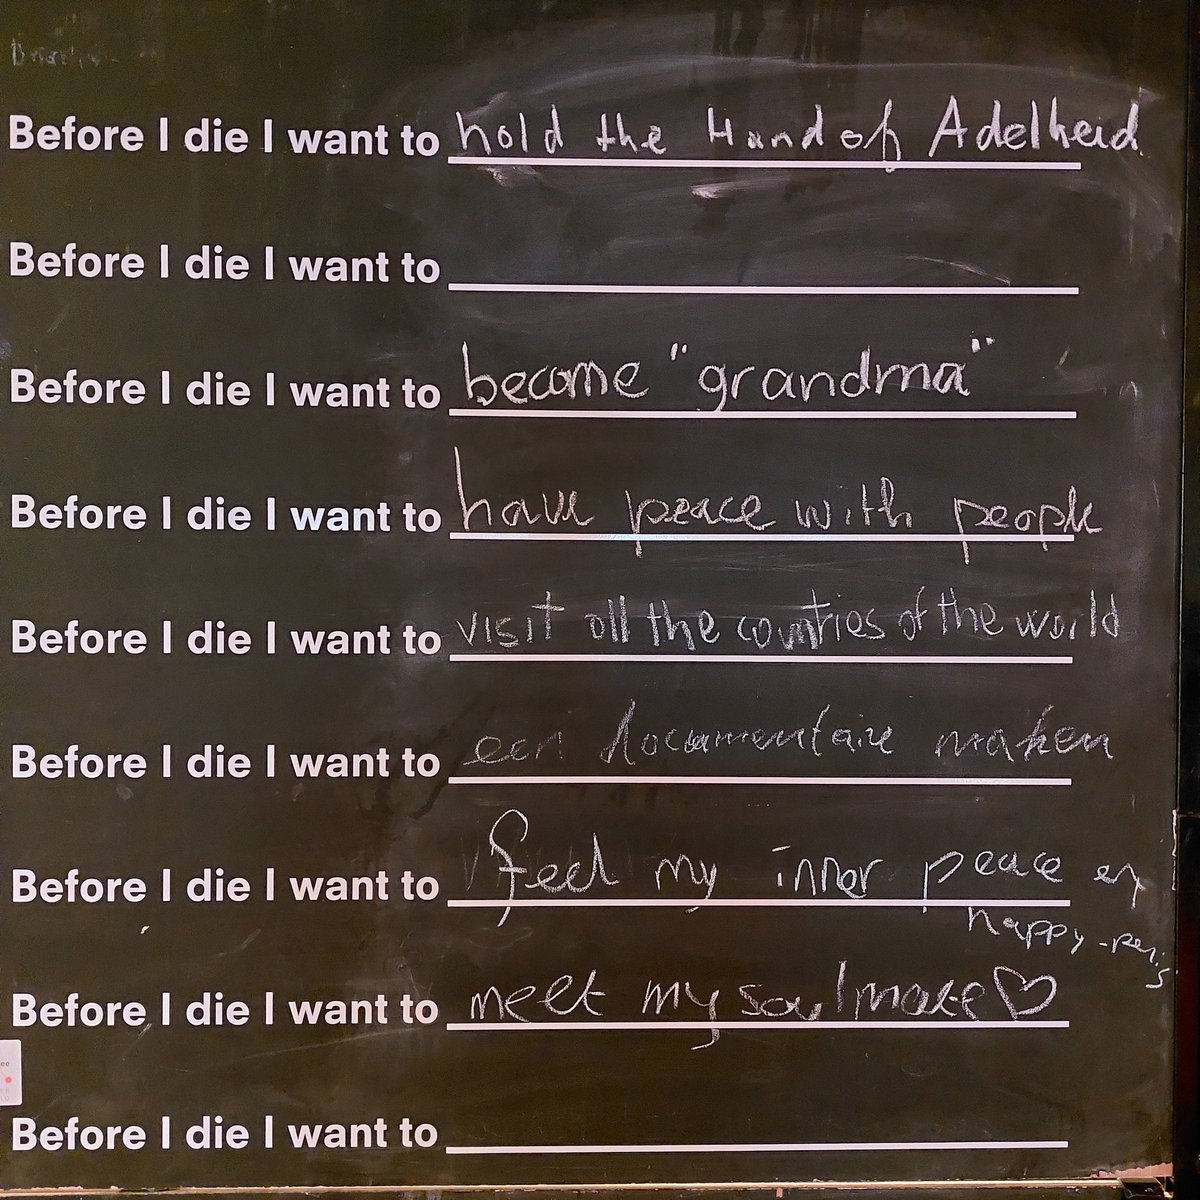 Before I die I want to hold the Hand of Adelheid
Before I die I want to
Before I die I want to become "grandma"
Before I die I want to have peace with people
Before I die I want to visit all the countries of the world
Before I die I want to een documentaire maken
Before I die I want to feel my inner peace en
happy-penis
Before I die I want to meet my soulmate♡
Before I die I want to